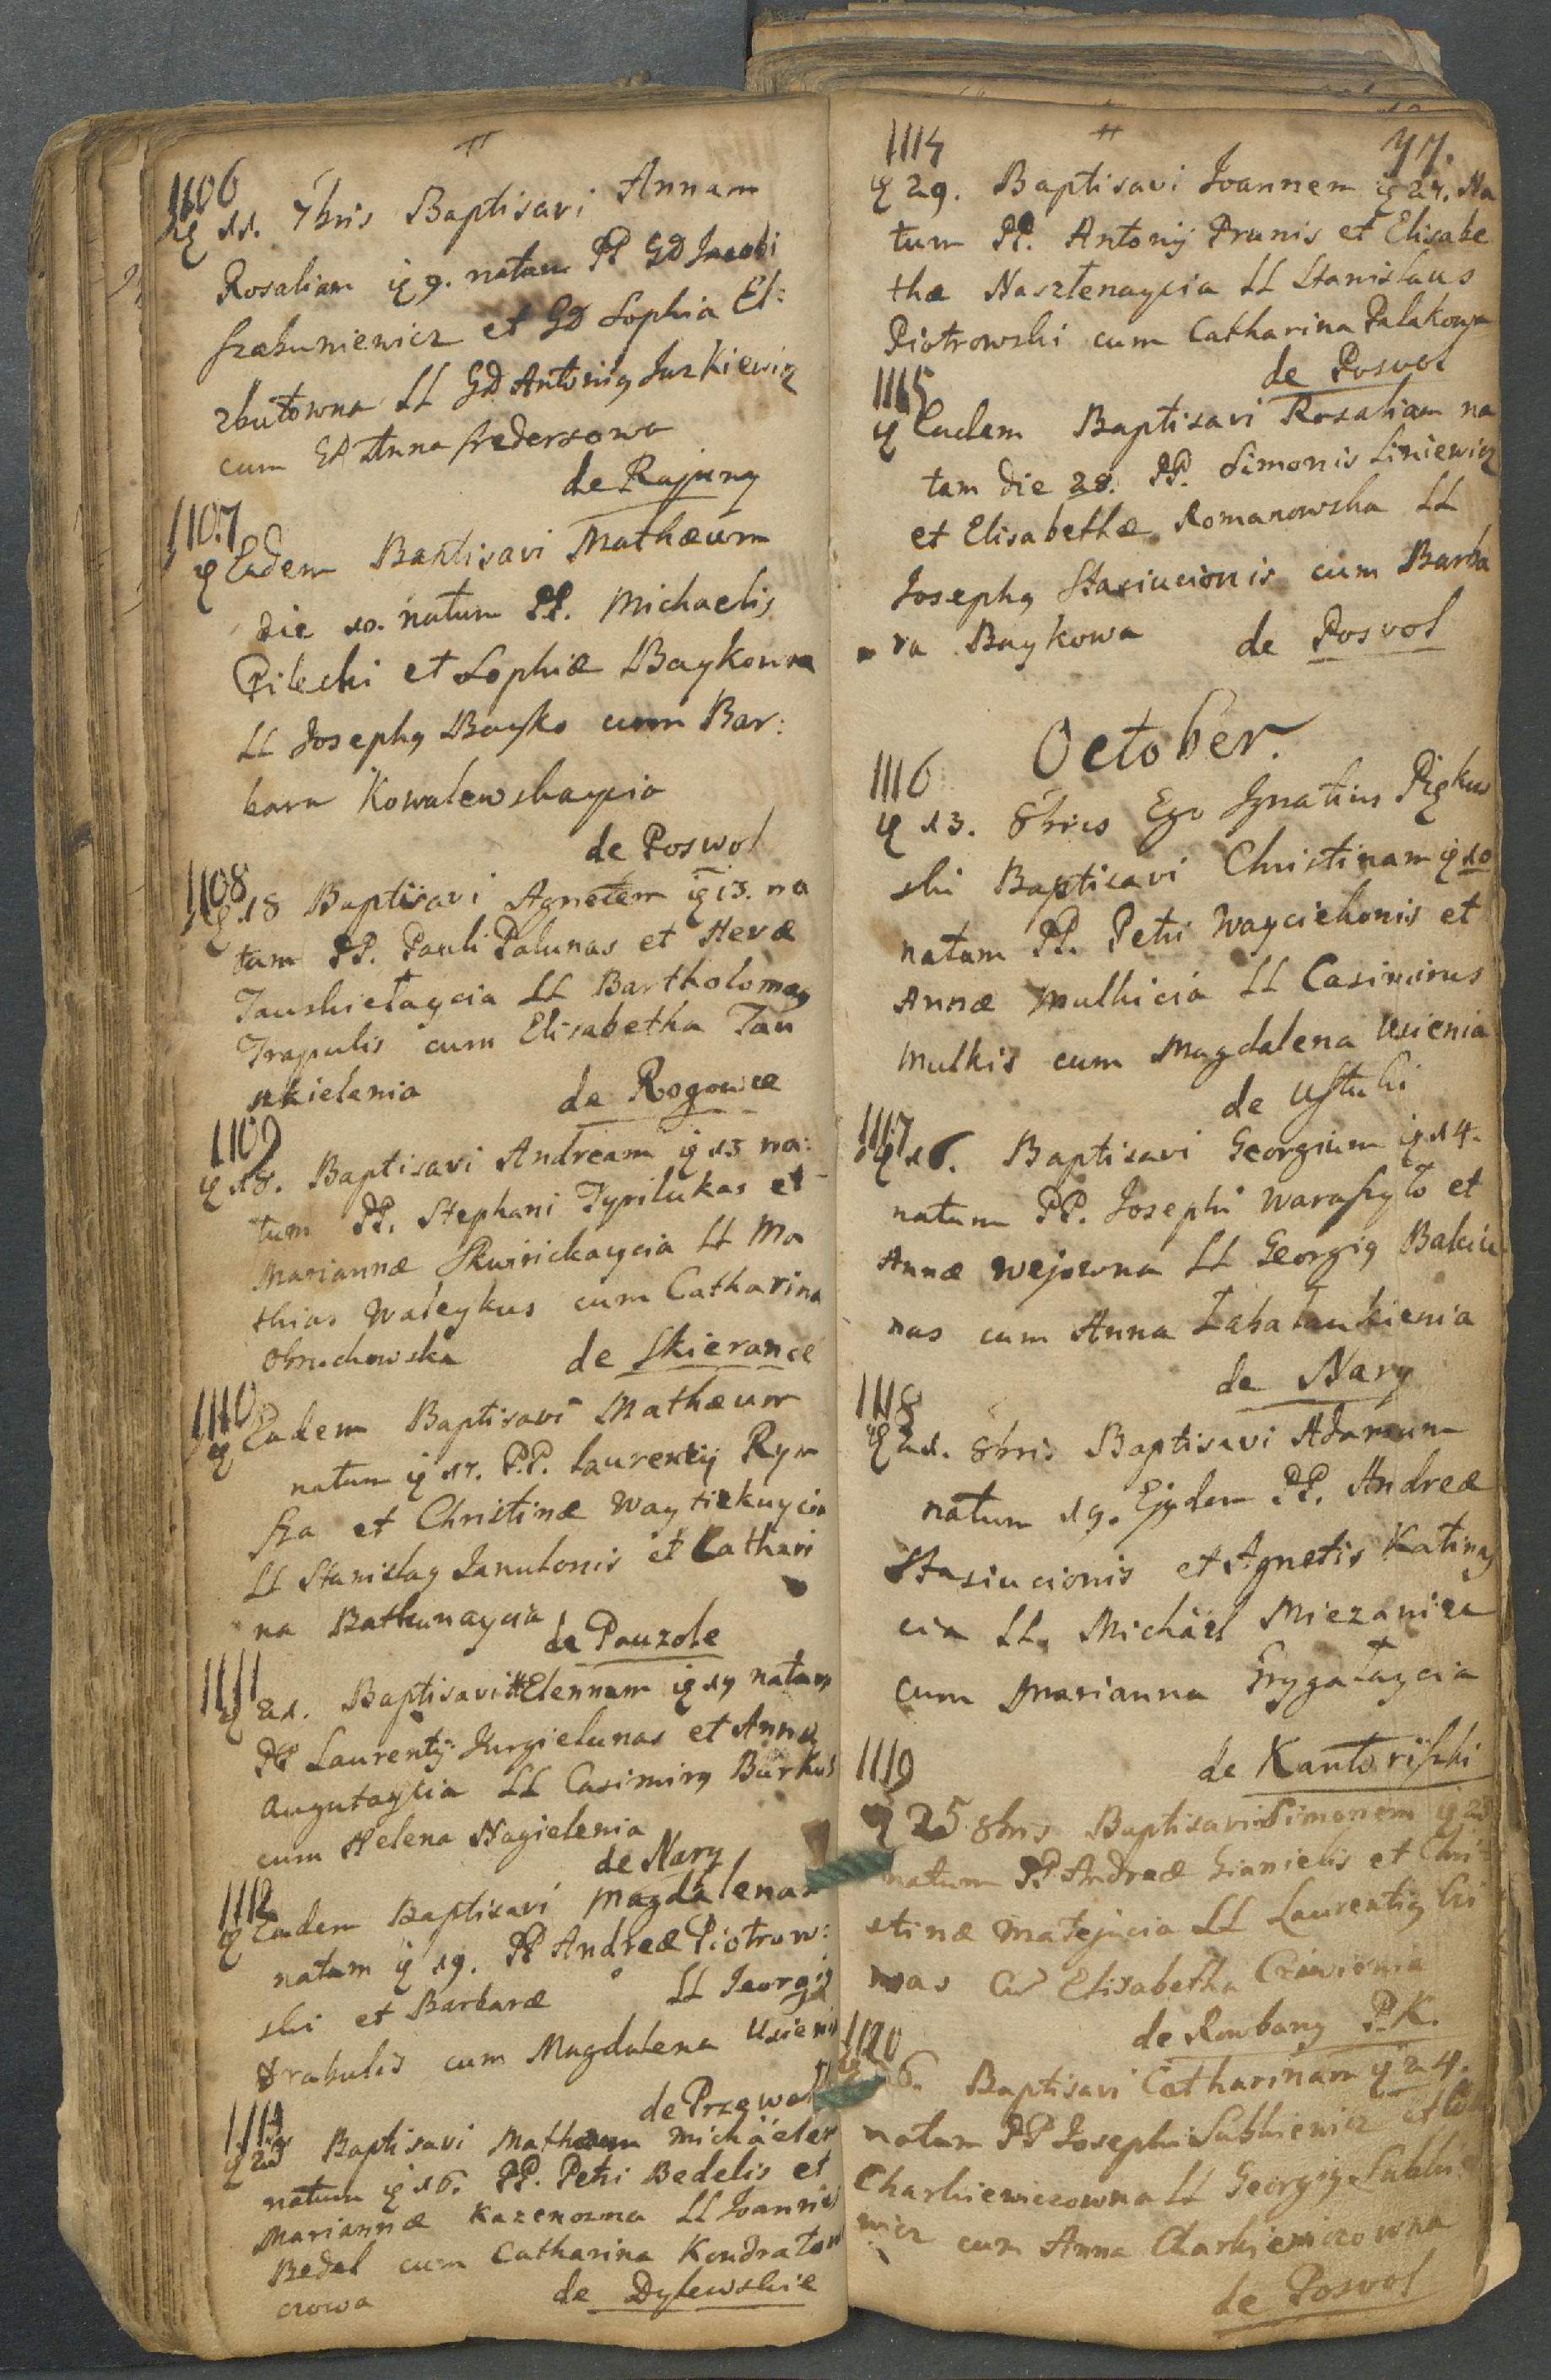 1106
11. 7bris Baptisavi Annam
Rosaliam 9. natam PP GD Jacobi
Szabuniewicz et GD Sophia El:
zbutowna LL GD Antonig Juzkiewicz
cum GD Anna
de Rajuny
1107
Eadem Baptisavi Mathæum
die 10. natum PP. Michaelis
Pileski et Sophiæ Baykowna
LL Josephg Bayko cum Bar:
bara Kowalewskaycia
de Poswol
1108
18 Baptisavi Agnetem 13. na
tam PP. Pauli Palunas et Hevæ
LL Bartholomæg
Trapulis cum Elisabetha Tau
de Rogowce
1109
18. Baptisavi Andream 15 na:
tum PP. Stephani Typilukas et
Mariannæ LL Ma
thias Waleykus cum Catharina
Obuchowska de Skierance
1110
Eadem Baptisavi Mathæum
natum 17. P.P. Laurentij Rym
sza et Christinæ
LL Stanislag Janulonis et Cathari
na Batkunaycia
de Pauzole
1111
21. Baptisavi Helennam 19 natam
PP Laurentij Jurgielunas et Annæ
Augutaycia LL Casimirg Burkus
cum Helena Nagielenia
de Nary
1112
Eadem Baptisavi Magdalenam
natam 19. PP Andreæ Piotrow:
ski et Barbaræ LL Georgig
Drabulis cum Magdalena Usienia
1113
Baptisavi Michäelem
natum 16. PP. Petri Bedelis et
Mariannæ LL Joannes
Bedel cum Catharina Kondratow
czowa de Dylewskie
1114
77.
29. Baptisavi Joannem 27. Na
tum PP. Antonij Prunis et Elisabe
thæ Nasztenaycia LL Stanislaus
Piotrowski cum Catharina Palakowa
de Posvol
1115
Eadem Baptisavi Rosaliam na
tam die 28. PP. Simonis Liniewicz
et Elisabethæ Romanowska LL
Josephg Stasiucionis cum Barba
ra Baykowa de Posvol
October.
1116
13. 8bris Ego Ignatius Pigkow
ski Baptisavi Christinam 10
natam PP. Petri Wayciekonis et
Annæ Mulkicia LL Casimirus
Mulkis cum Magdalena Usienia
de Ustuki
1117
16. Baptisavi Georgium 14.
natum PP. Josephi Waraszylo et
Annæ Wejowna LL Georgig Bakiu
nas cum Anna
de Nary
1118
21. 8bris Baptisavi Adamum
natum 19. Ejgdem PP. Andreæ
Stasiucionis et Agnetis Katinay
cia LL. Michäel Miezanis
cum Marianna Grygalaycia
de Kantoriszki
1119
25 8bris Baptisavi Simonem 23
natum PP Andreæ et Chri
stinæ Matejucia LL Laurentig
mas Cum Elisabetha
de Rowbany P.K.
1120
26. Baptisavi Catharinam 24.
natam PP Josephi Sabkiewicz et
Charkiewiczowna LL Georgig Sabkie
wicz cum Anna Charkiewiczowna
de Posvol